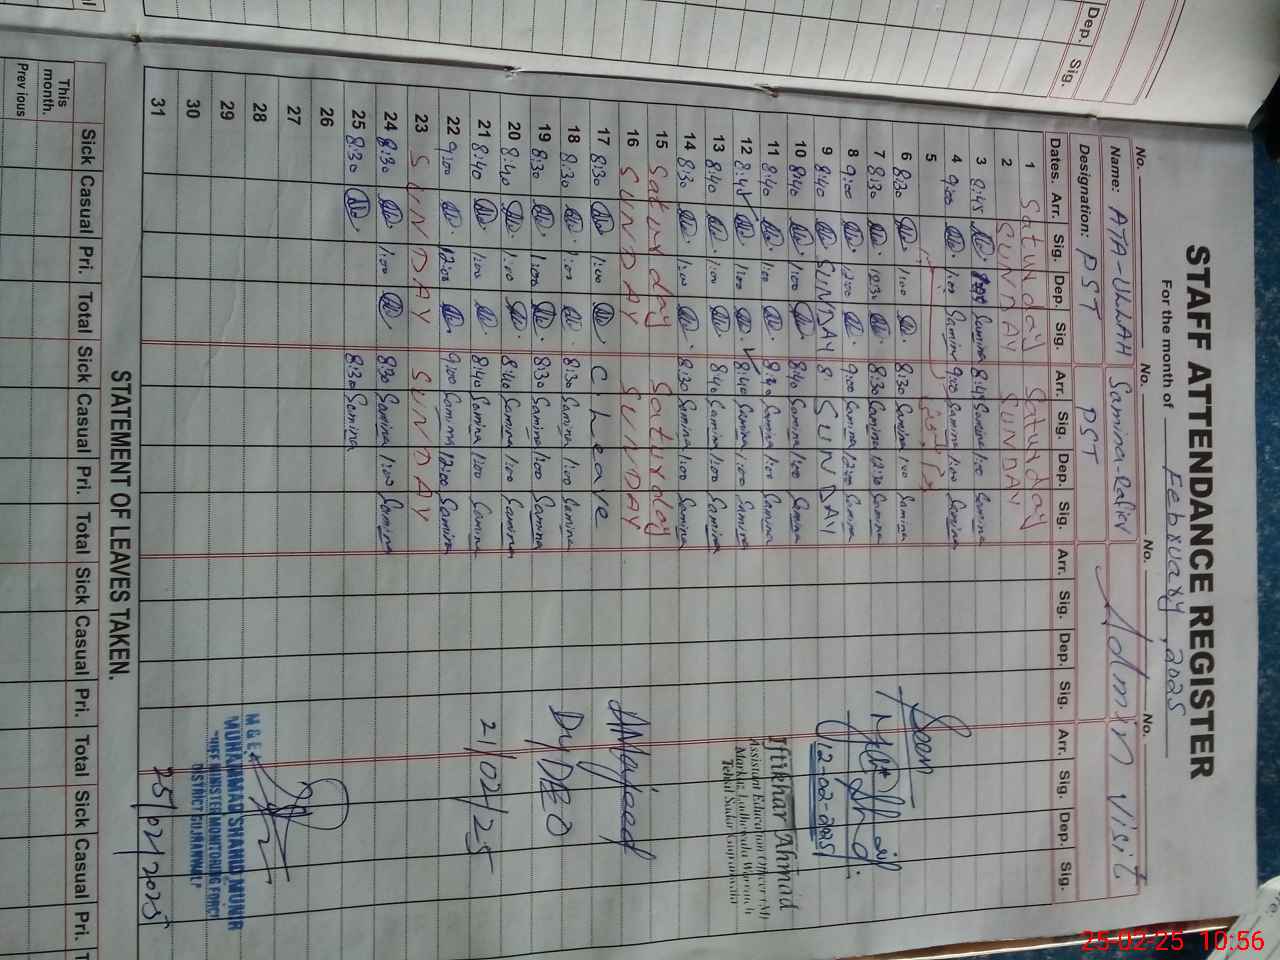 Dep.
Sig.
STAFF ATTENDANCE REGISTER
For the month of February, 2025
No. No. No. No.
Name: ATA-Ullah Samina-Rafiq Admin Visit
Designation: PST PST
Dates. Arr. Sig. Dep. Sig. Arr. Sig. Dep. Sig. Arr. Sig. Dep. Sig. Arr. Sig. Dep. Sig.
1 Saturday Saturday
2 SUNDAY SUNDAY
3 8:45 Samina 8:45 Samina 1:00 Samina
4 9:00 1:00 Samina 9:00 Samina 1:00 Samina
5
6 8:30 1:00 8:30 Samina 1:00 Samina
7 8:30 12:30 8:30 Samina 12:30 Samina
8 9:00 12:00 9:00 Samina 12:00 Samina
9 8:40 SUNDAY 8: SUNDAY
10 8:40 1:00 8:40 Samina 1:00 Samina
11 8:40 1:00 8:40 Samina 1:00 Samina
12 8:45 1:00 8:40 Samina 1:00 Samina
13 8:40 1:00 8:40 Samina 1:00 Samina
14 8:30 1:00 8:30 Samina 1:00 Samina
15 Saturday Saturday
16 SUNDAY SUNDAY
17 8:30 1:00 C. Leave
18 8:30 1:00 8:30 Samina 1:00 Samina
19 8:30 1:00 8:30 Samina 1:00 Samina
20 8:40 1:00 8:40 Samina 1:00 Samina
21 8:40 1:00 8:40 Samina 1:00 Samina
22 9:00 12:00 9:00 Samina 12:00 Samina
23 SUNDAY SUNDAY
24 8:30 1:00 8:30 Samina 1:00 Samina
25 8:30 8:30 Samina
26
27
28
29
30
31
Seen
12-02-2025
Iftikhar Ahmad
Assistant Education Officer (M)
Dy DEO
21/02/25
M & E A
MUHAMMAD SHAHID MUNIR
CHIEF MINISTER MONITORING FORCE
DISTRICT GUJRANWALA
25/02/2025
STATEMENT OF LEAVES TAKEN.
Sick Casual Pri. Total Sick Casual Pri. Total Sick Casual Pri. Total Sick Casual Pri. T
This month.
Previous
25-02-25 10:56